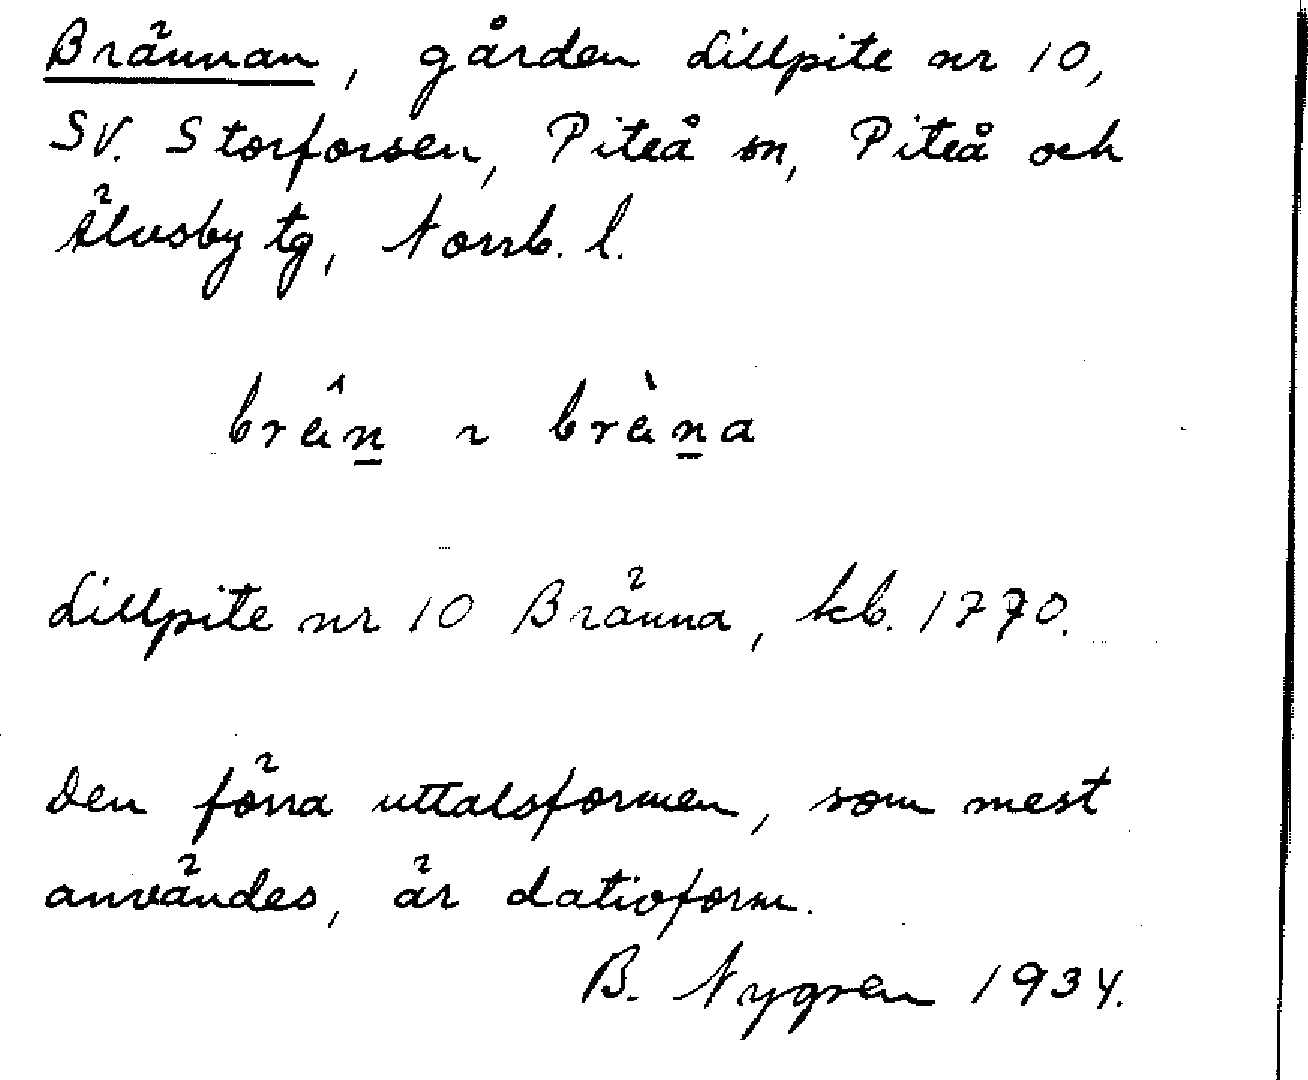 Brännan, gården Lillpite nr 10,
SV. Storforsen, Piteå sn, Piteå och
Älvsby tg, Norrb. l.
brân̲ ~ bràn̲a
Lillpite nr 10 Bränna, kb. 1770.
Den förra uttalsformen, som mest
användes, är dativform.
B. Nygren 1934.